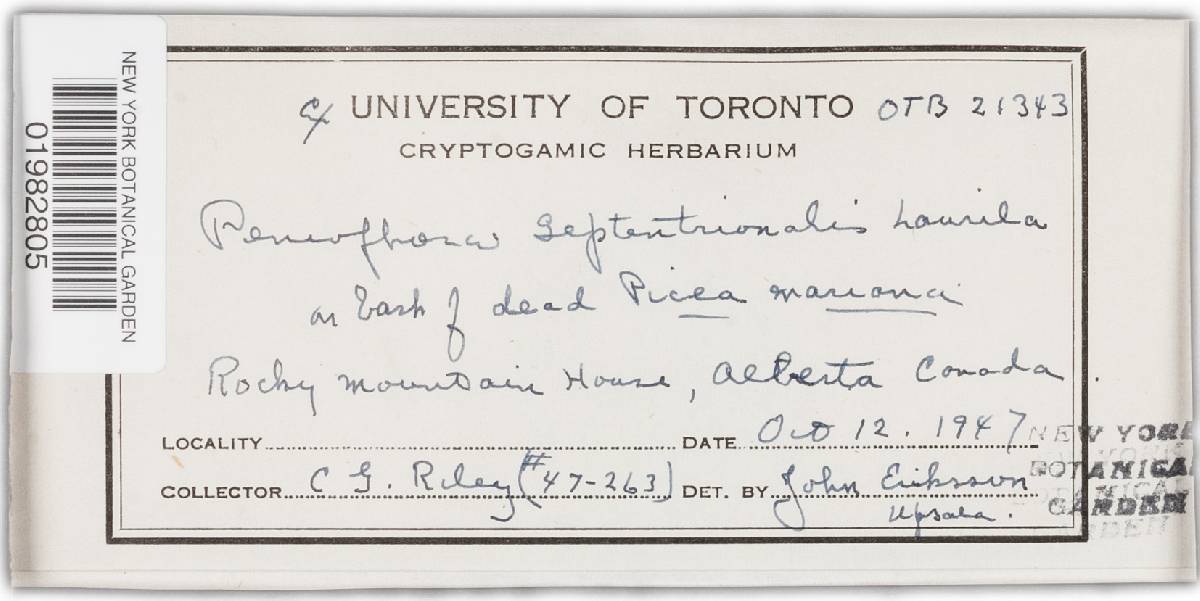 ex UNIVERSITY OF TORONTO OTB 21343
CRYPTOGAMIC HERBARIUM
Peniophora septentrionalis Laurila
on bark of dead Picea mariana
Rocky Mountain House, Alberta Canada.
LOCALITY DATE Oct 12. 1947
COLLECTOR C G. Riley (#47-263) DET. BY John Eriksson
Upsala.
NEW YORK
BOTANICAL
GARDEN
NEW YORK BOTANICAL GARDEN
01982805